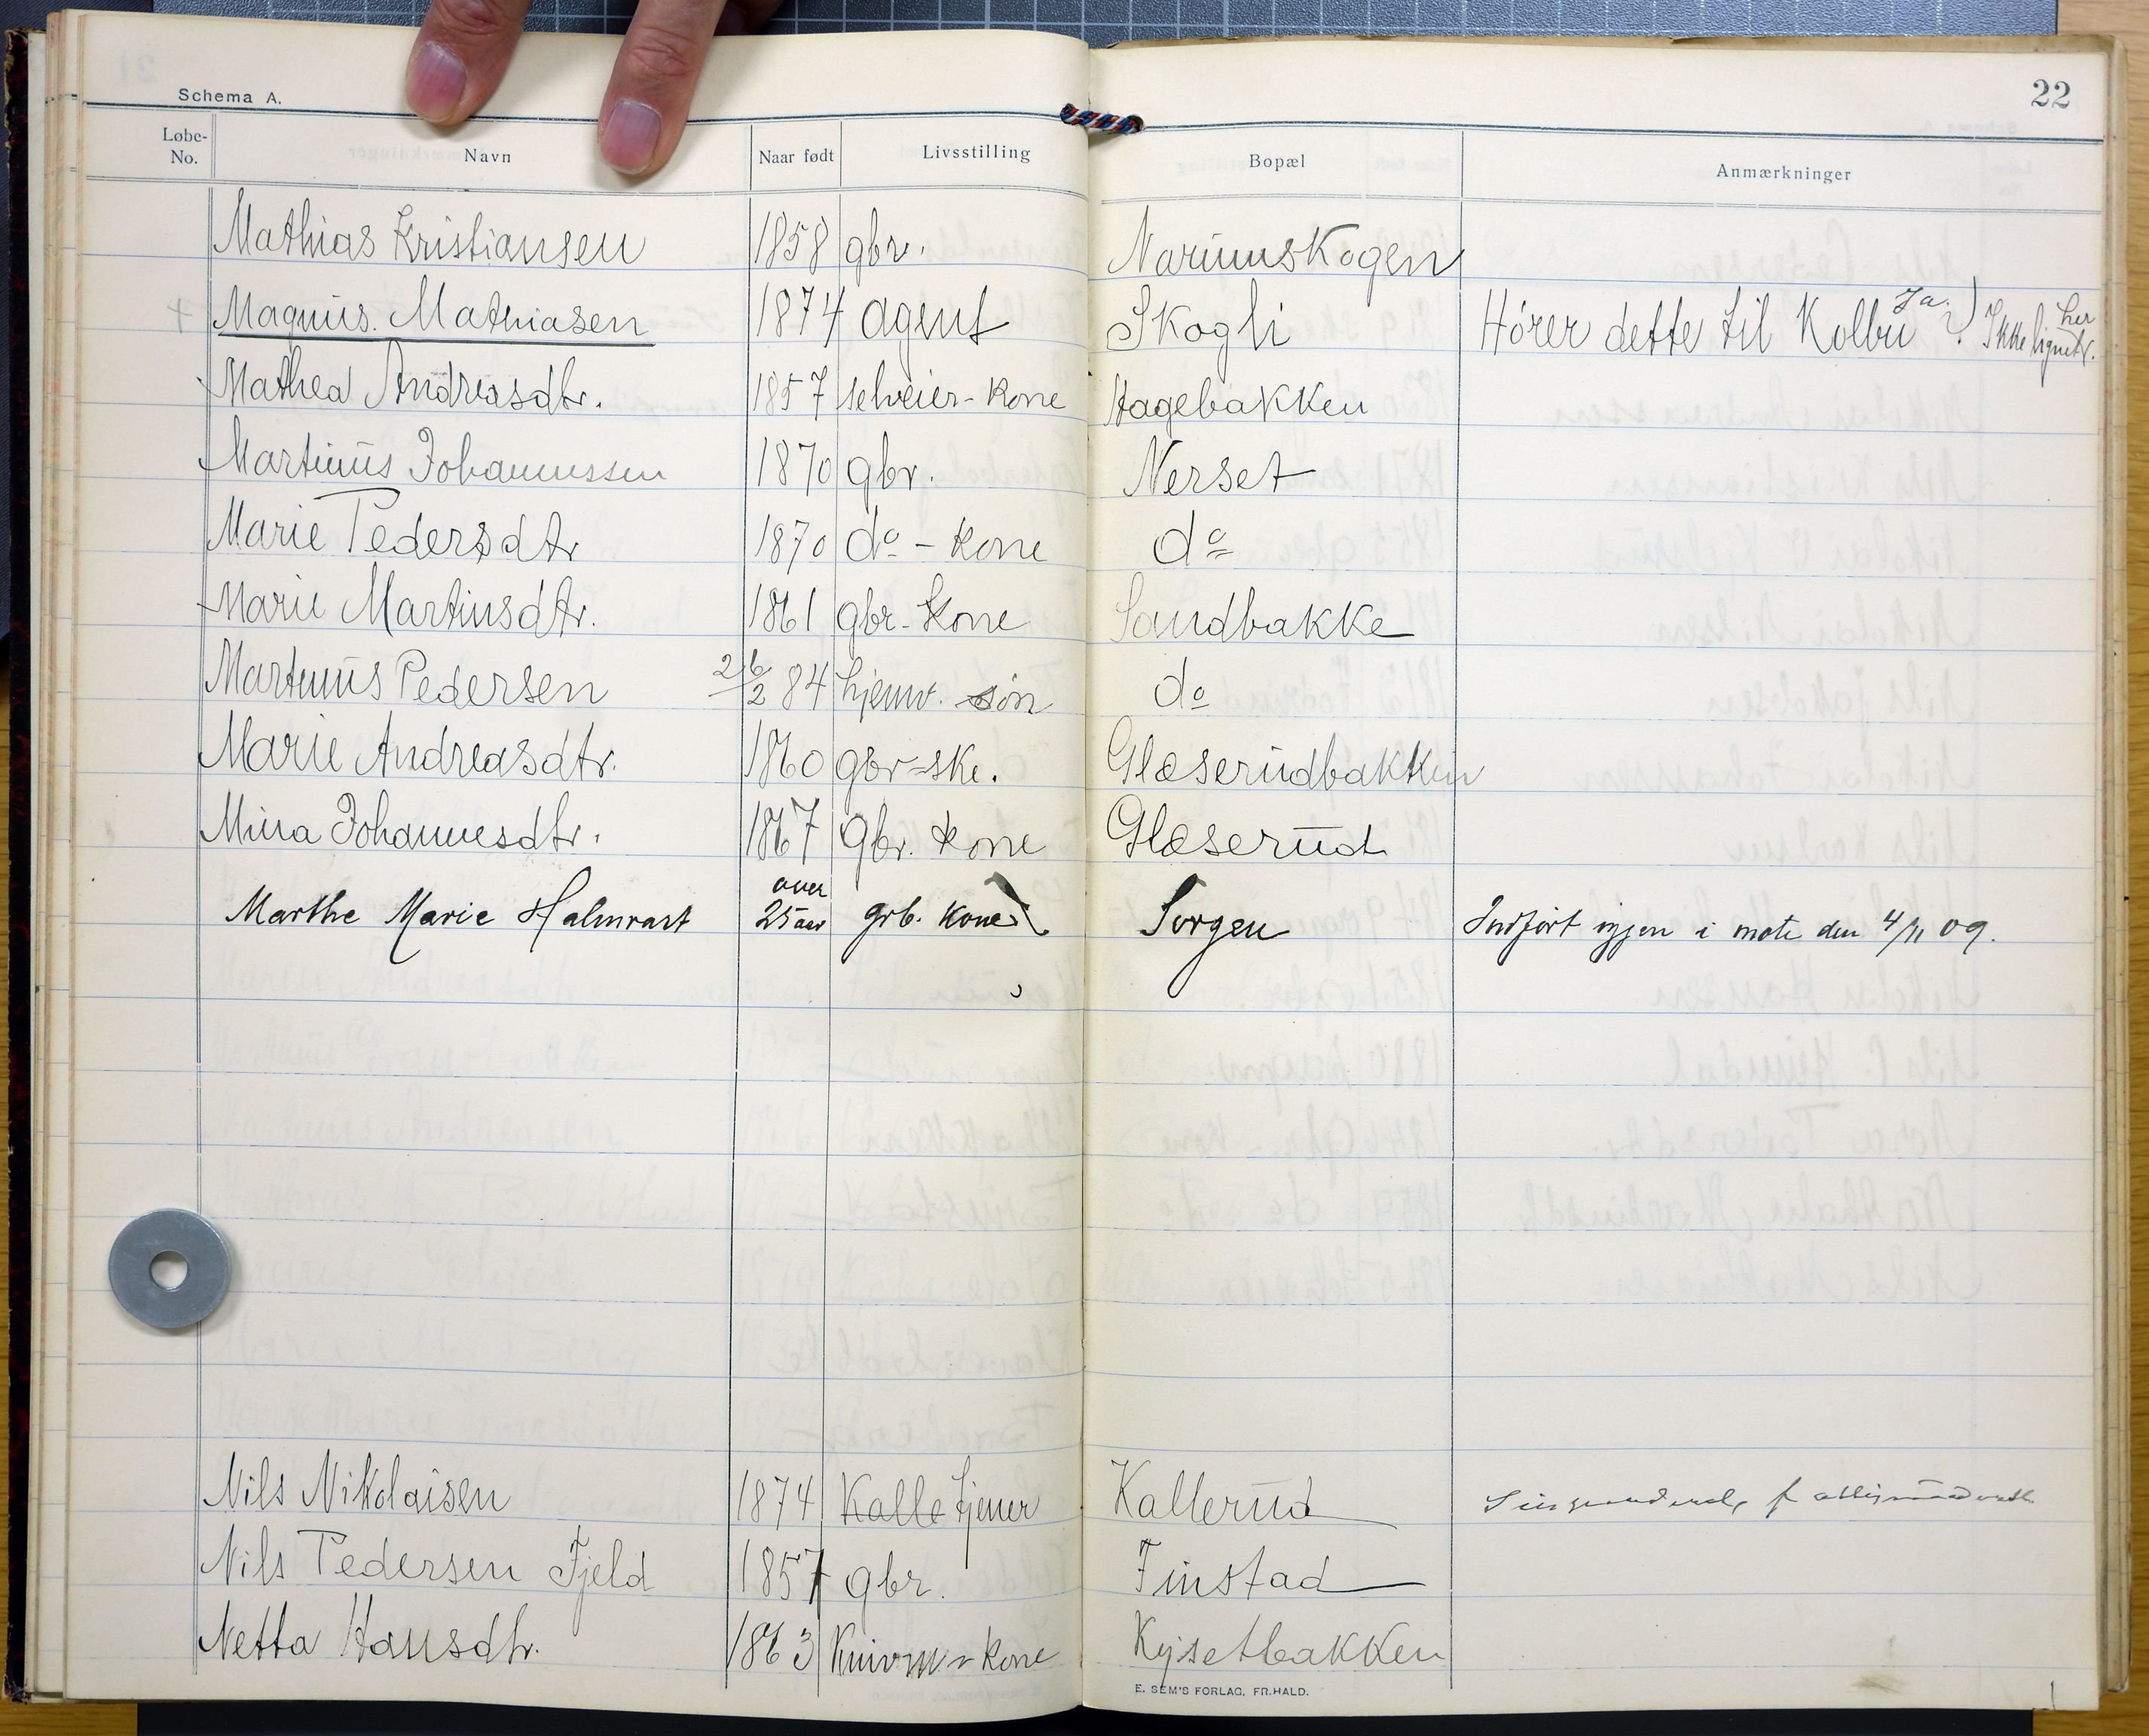 22
Schema A.
Løbe-No. Navn Naar født Livsstilling Bopæl Anmærkninger
Mathias Kristiansen 1858 gbr. Narumskogen
+ Magnus. Mathiasen 1874 agent Skogli Hører dette til Kolbu? Ja. Ikke lignet her.
Mathea Andreasdtr. 1857 selveier-kone Hagebakken
Martinus Johannessen 1870 gbr. Nerset
Marie Pedersdtr 1870 do - kone do
Marie Martinsdtr. 1861 gbr-kone Sandbakke
Martinus Pedersen 26/2 84 hjemv. søn do
Marie Andreasdtr. 1860 gbr-ske. Glæserudbakken
Mina Johannesdtr. 1867 gbr. kone Glæserud
Marthe Marie Halmrast over 25 aar grb. kone Sorgen Indført igjen i møte den 4/11 09.
Nils Nikolaisen 1874 Kalletjener Kallerud
Nils Pedersen Fjeld 1857 gbr. Finstad
Netta Hansdtr. 1863 kone Kysetbakken
E. SEM'S FORLAG, FR.HALD.